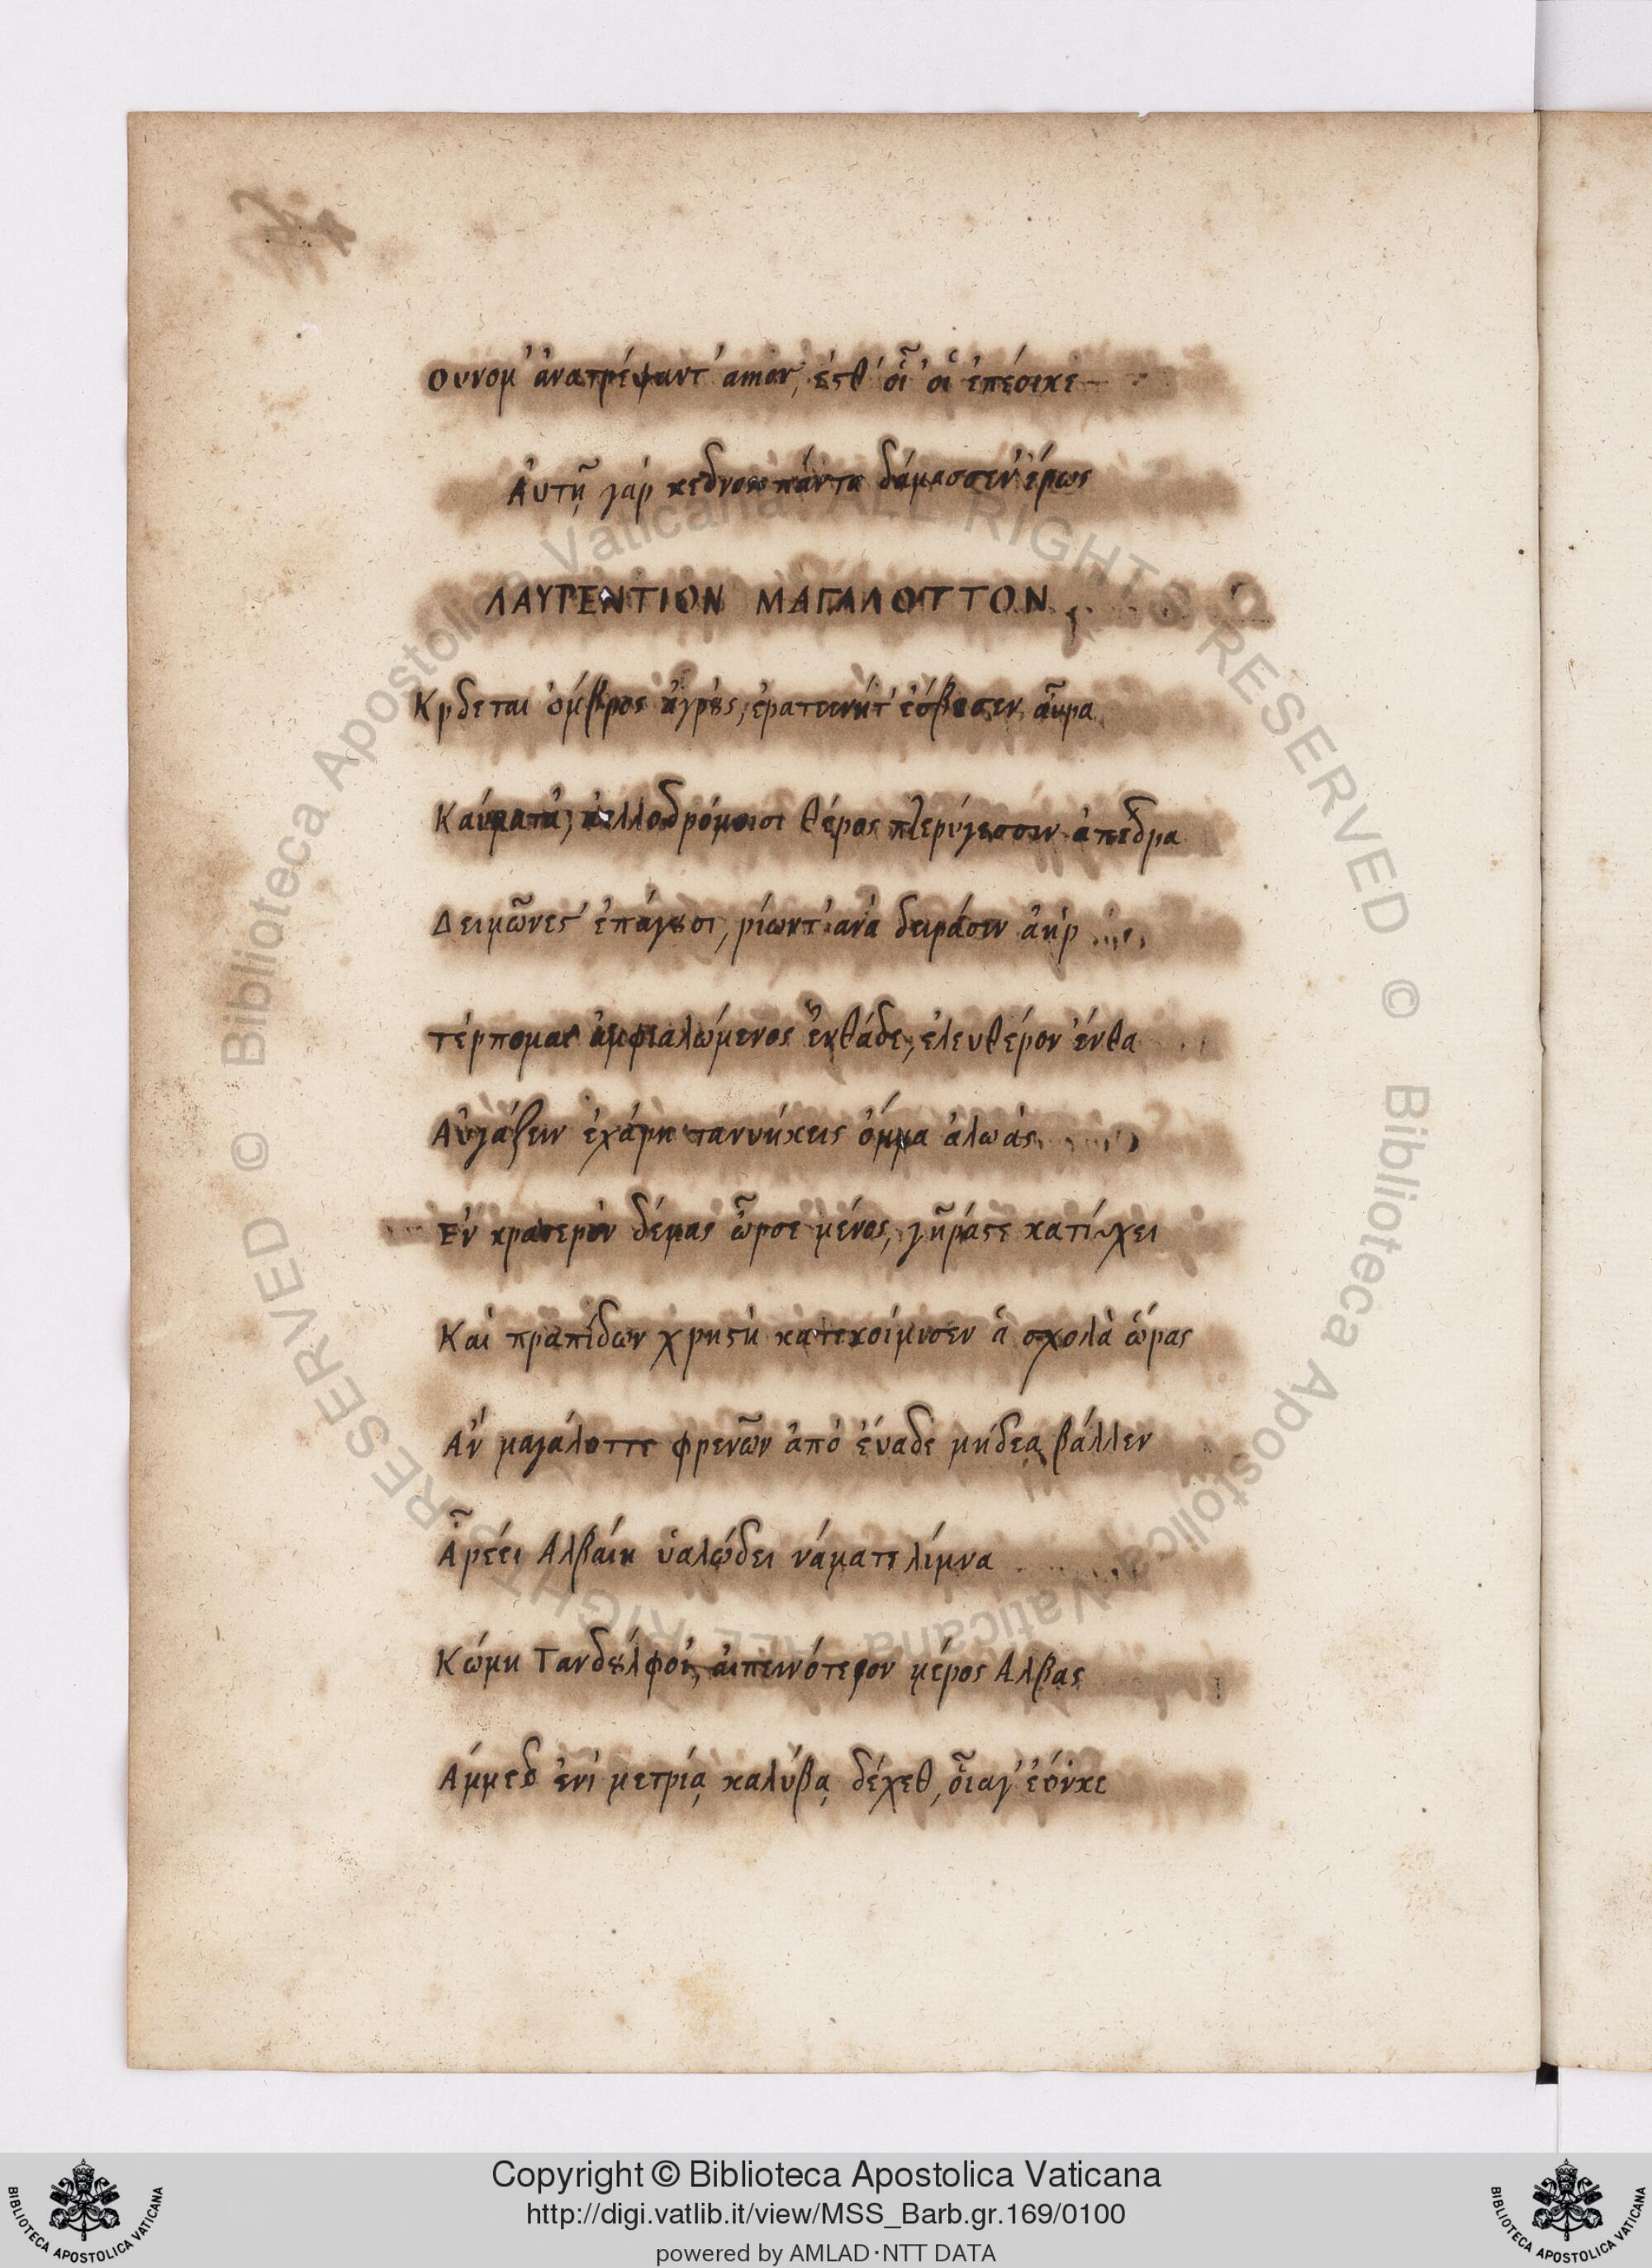 Ουνομ' ἀνατρέψαντ' amor, ἐϛθ' οἷ οἷ ἐπέοικε
Ἀυτῇ γάρ κεδνος πάντα δάμασσεν ἔρως
ΛΑΥΡΕΝΤΙΟΝ ΜΑΓΑΛΟΤΤΟΝ
ὀμβρος ἀγρȣς, ἐρατεινήτ' ἐσβεσεν ἆυρα
Καύματα, ἀελλοδρόμοισι θέρος πτερύγεσσιν ἀπεδρα
Δειμῶνες ἐπάγȣσι, ῥίωντ' ἀνά δειράσιν ἀήρ
τέρπομαι ἐνθάδε, ἐλευθέρον ἔνθα
Αὐγάζειν ἐχάρη τανυήκεις ὄμμα ἀλωάς
Ἐν κρατερὸν δέμας ὦρσε μένος, γῆράϛε κατίχει
Καὶ πραπίδων χρηϛὴ κατεκοίμισεν ἁ σχολὰ ὥρας
Αν μαγάλοττε φρενῶν ἀπό ἐυαδε μήδεα βάλλεν
Ἇ ῥέει Αλβαίη ὑαλώδει νάματε λίμνα
Κώμη Τανδȣλφοι, ἀιπεινότερον μέρος Αλβας
Ἀμμεδ ἐνί μετρίᾳ καλύβᾳ δέχεθ, οἷαγ' ἐόικε
Copyright © Biblioteca Apostolica Vaticana
http://digi.vatlib.it/view/MSS_Barb.gr.169/0100
powered by AMLAD·NTT DATA
BIBLIOTECA APOSTOLICA VATICANA
BIBLIOTECA APOSTOLICA VATICANA
© Biblioteca Apostolica Vaticana. ALL RIGHTS RESERVED
© Biblioteca Apostolica Vaticana. ALL RIGHTS RESERVED